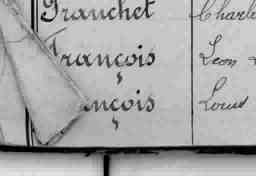 Granchet Charle
François Léon
ançois Louis